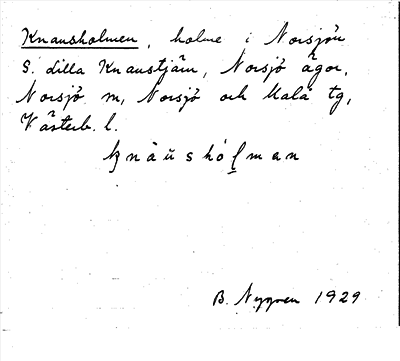 Knausholmen, holme i Norsjön
S. Lilla Knaustjärn, Norsjö ägor,
Norsjö sn, Norsjö och Malå tg,
Västerb. l.
knàu̇shólman
B. Nygren 1929